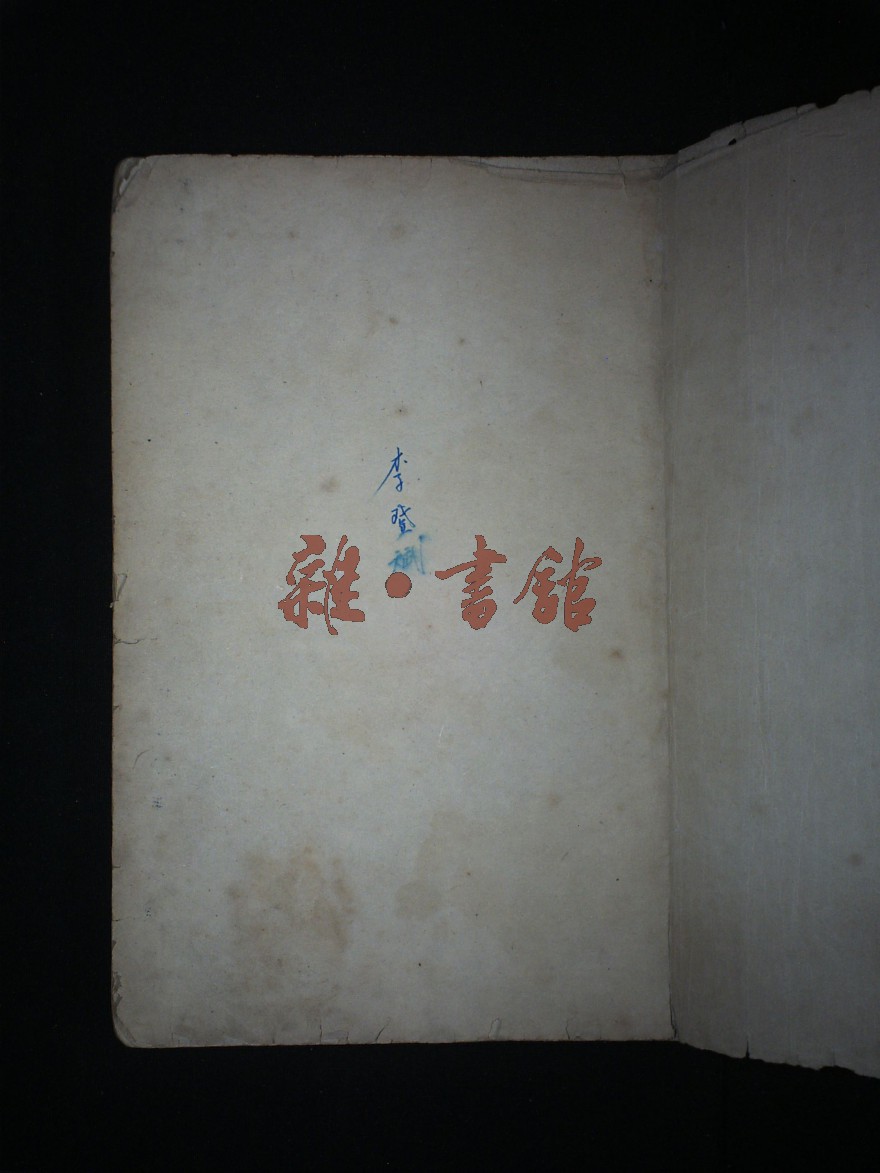 李登斌
雜·書館